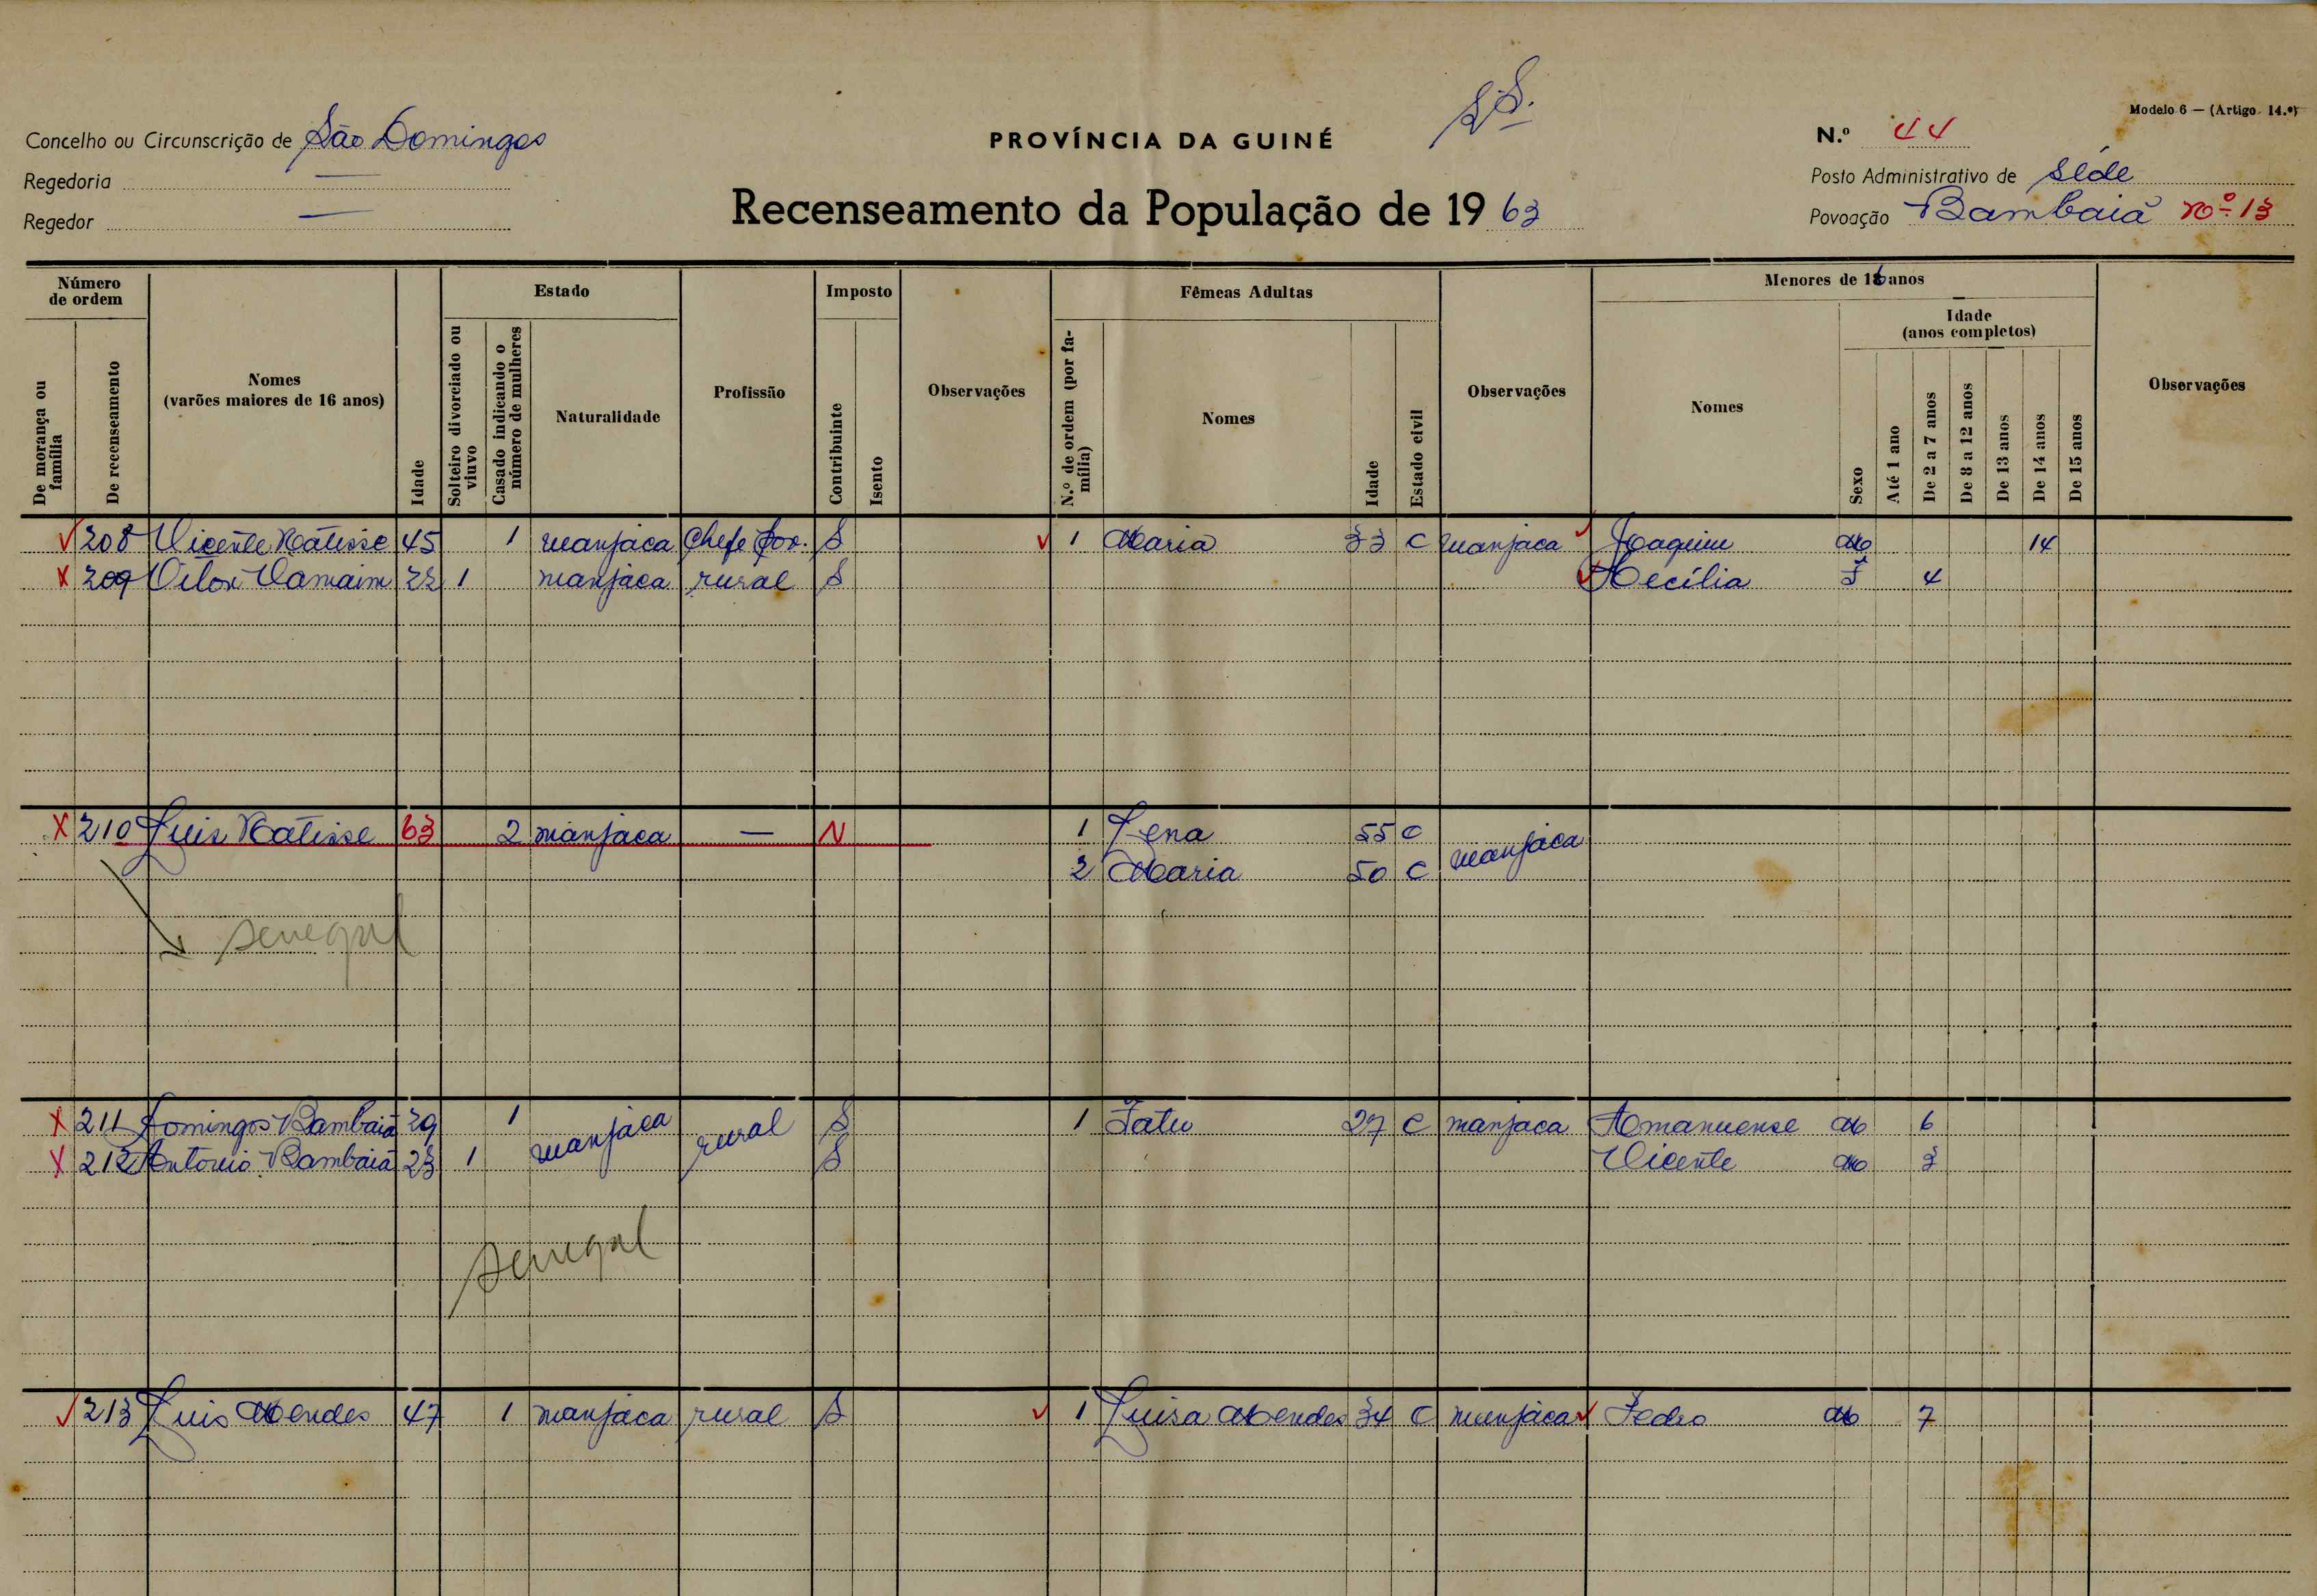 Modelo 6 — (Artigo 14.º)
Concelho ou Circunscrição de São Domingos
PROVÍNCIA DA GUINÉ
N.º 44
Regedoria —
Posto Administrativo de Séde
Regedor —
Recenseamento da População de 1963
Povoação Bambaiã nº 13
Número de ordem
Estado
Imposto
Fêmeas Adultas
Menores de 16 anos
De morança ou família
De recenseamento
Nomes (varões maiores de 16 anos)
Idade
Solteiro divorciado ou viuvo
Casado indicando o número de mulheres
Naturalidade
Profissão
Contribuinte
Isento
Observações
N.º de ordem (por família)
Nomes
Idade
Estado civil
Observações
Nomes
Sexo
Idade (anos completos)
Até 1 ano
De 2 a 7 anos
De 8 a 12 anos
De 13 anos
De 14 anos
De 15 anos
Observações
208 Vicente Natisse 45 1 manjaca Chefe Pov. S 1 Maria 33 C manjaca Joaquim M 14
209 22 1 manjaca rural S Cecília F 4
210 Luis Natisse 63 2 manjaca — N 1 Lena 55 C manjaca
2 Maria 50 C
senegal
211 Domingos Bambaiã 29 1 manjaca rural S 1 Fatu 27 C manjaca Amanuense M 6
212 António Bambaiã 23 1 S Vicente M 3
senegal
213 Luis Mendes 47 1 manjaca rural S 1 Luisa Mendes 34 C manjaca Pedro M 7